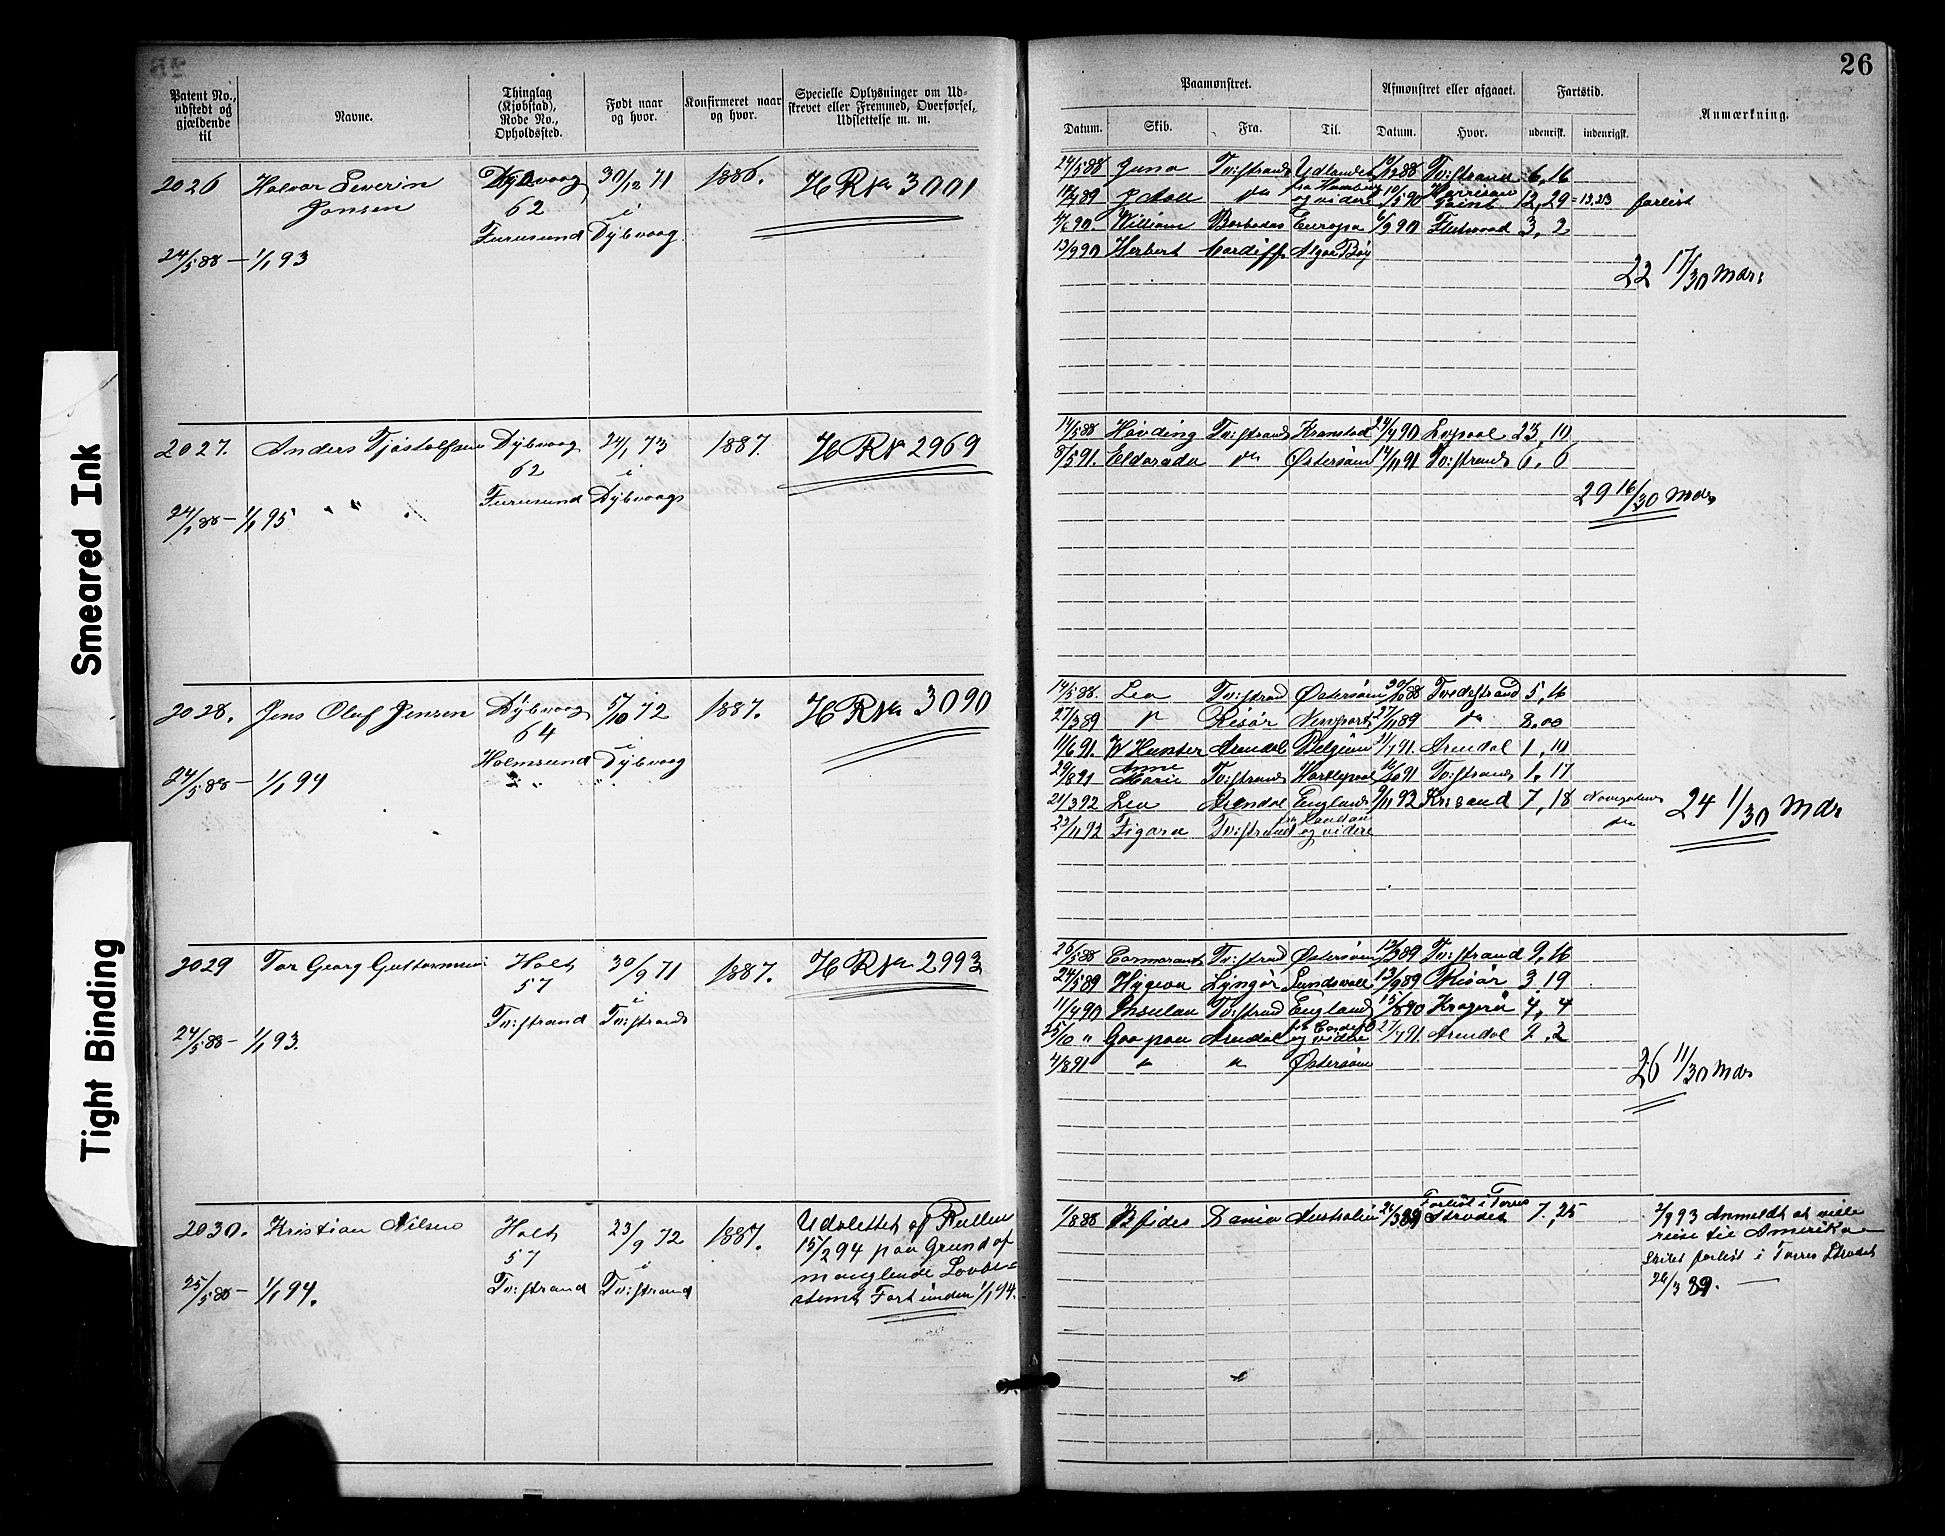 26
Patent No., udstedt og gjældende til
Navne.
Thinglag (Kjøbstad), Rode No., Opholdssted.
Født naar og hvor.
Konfirmeret naar og hvor.
Specielle Oplysninger om Udskrevet eller Fremmed, Overførsel, Udslettelse m. m.
Paamønstret.
Datum.
Skib.
Fra.
Til.
Afmønstret eller afgaaet.
Datum.
Hvor.
Fartstid.
udenrigsk.
indenrigsk.
Anmærkning.
2026 Halvor Severin Dybvaag 30/12 71 1886. HR No 3001
Jonsen 62 i
Furusund Dybvaag
24/5 88 — 1/1 93
24/5 88 Juno Tv:strand Udlandet 88 Tv:strand 6, 16
fra Hamburg og videre 10/5 90 12, 29 = 13,23 forlist
4/6 90. William Europa 6/9 90 Fleetwood 3, 2
13/9 90 Herbert Cardiff Algoa Bay
22 17/30 Mdr.
2027. Anders Tjøstolfsen Dybvaag 24/1 73 1887. HR No 2969
62 i
Furusund Dybvaag
24/5 88 — 1/1 95 " "
14/5 88 Høvding Tv:strand Kronstad 24/7 90 Lvpool 23, 10
8/5 91. Eldorado do Østersøen 14/11 91 Tv:strand 6, 6
29 16/30 Mdr
2028. Jens Oluf Jensen Dybvaag 5/10 72 1887. HR No 3090
64 i
Holmsund Dybvaag
24/5 88 — 1/1 94
14/5 88. Leo Tv:strand Østersøen 30/10 88 Tvedestrand 5, 16
27/3 89 do Risør Newport 27/11 89 do 8.00
11/6 91. W Hunter Arendal Belgien 21/7 91. Arendal 1, 10
29/8 91 Anne Marie Tv:strand Hartlepool 16/10 91 Tv:strand 1, 17
21/3 92 Leo Arendal England 9/11 92 Krsand 7, 18
23/11 92 Figaro Tv:strand og videre do
24 1/30 Mdr
2029 Tor Georg Guttormsen Holt 30/9 71 1887. HR No 2993
57 i
Tv:strand Tv:strand
24/5 88 — 1/1 93.
26/5 88 Cormorant Tv:strand Østersøen 12/3 89 Tv:strand 9, 16
24/5 89 Hygeia Lyngør Sundsvall 13/9 89 Risør 3, 19
11/4 90 Insulan Tv:strand England 15/8 90 Kragerø 4, 4
25/10 " Goa paa Arendal og videre 27/7 91. Arendal 9, 2
4/8 91 " " Østersøen
26 11/30 Mdr
2030. Kristian Nilsen Holt 23/9 72 1887. Udslettet af Rullen
57 i 15/2 94 paa Grund af
Tv:strand Tv:strand manglende Lovbe-
25/5 88 — 1/1 94. stemt Fart inden 1/1 94.
1/8 88 Dania Australien 26/3 89 Forlist i Torres Strædet 7, 25
2/9 93 Anmeldt at ville
reise til Amerika
Skibet forlist i Torres Strædet
26/3 89. —
Smeared Ink
Tight Binding